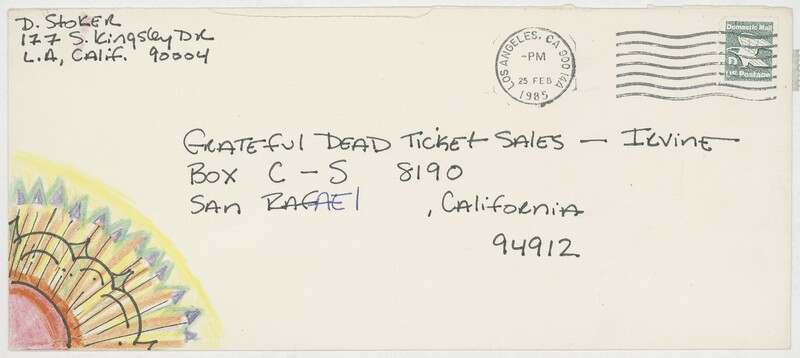 D. Stoker
177 S. Kingsley DR
L.A, Calif. 90004
LOS ANGELES, CA 900 14A
-PM
25 FEB
1985
Domestic Mail
D
US Postage
GRATEFUL DEAD TICKET SALES — IRVINE
BOX C-S 8190
SAN RAFAEL, CALIFORNIA
94912